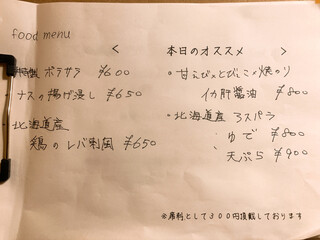 food menu
< 本日のオススメ >
特製 ポテサラ ¥600
ナスの揚げ浸し ¥650
・北海道産
鶏のレバ刺風 ¥650
・甘えびととびっこの焼のり
イカ肝醤油 ¥800
・北海道産 アスパラ
・ゆで ¥800
・天ぷら ¥900
※席料として300円頂戴しております